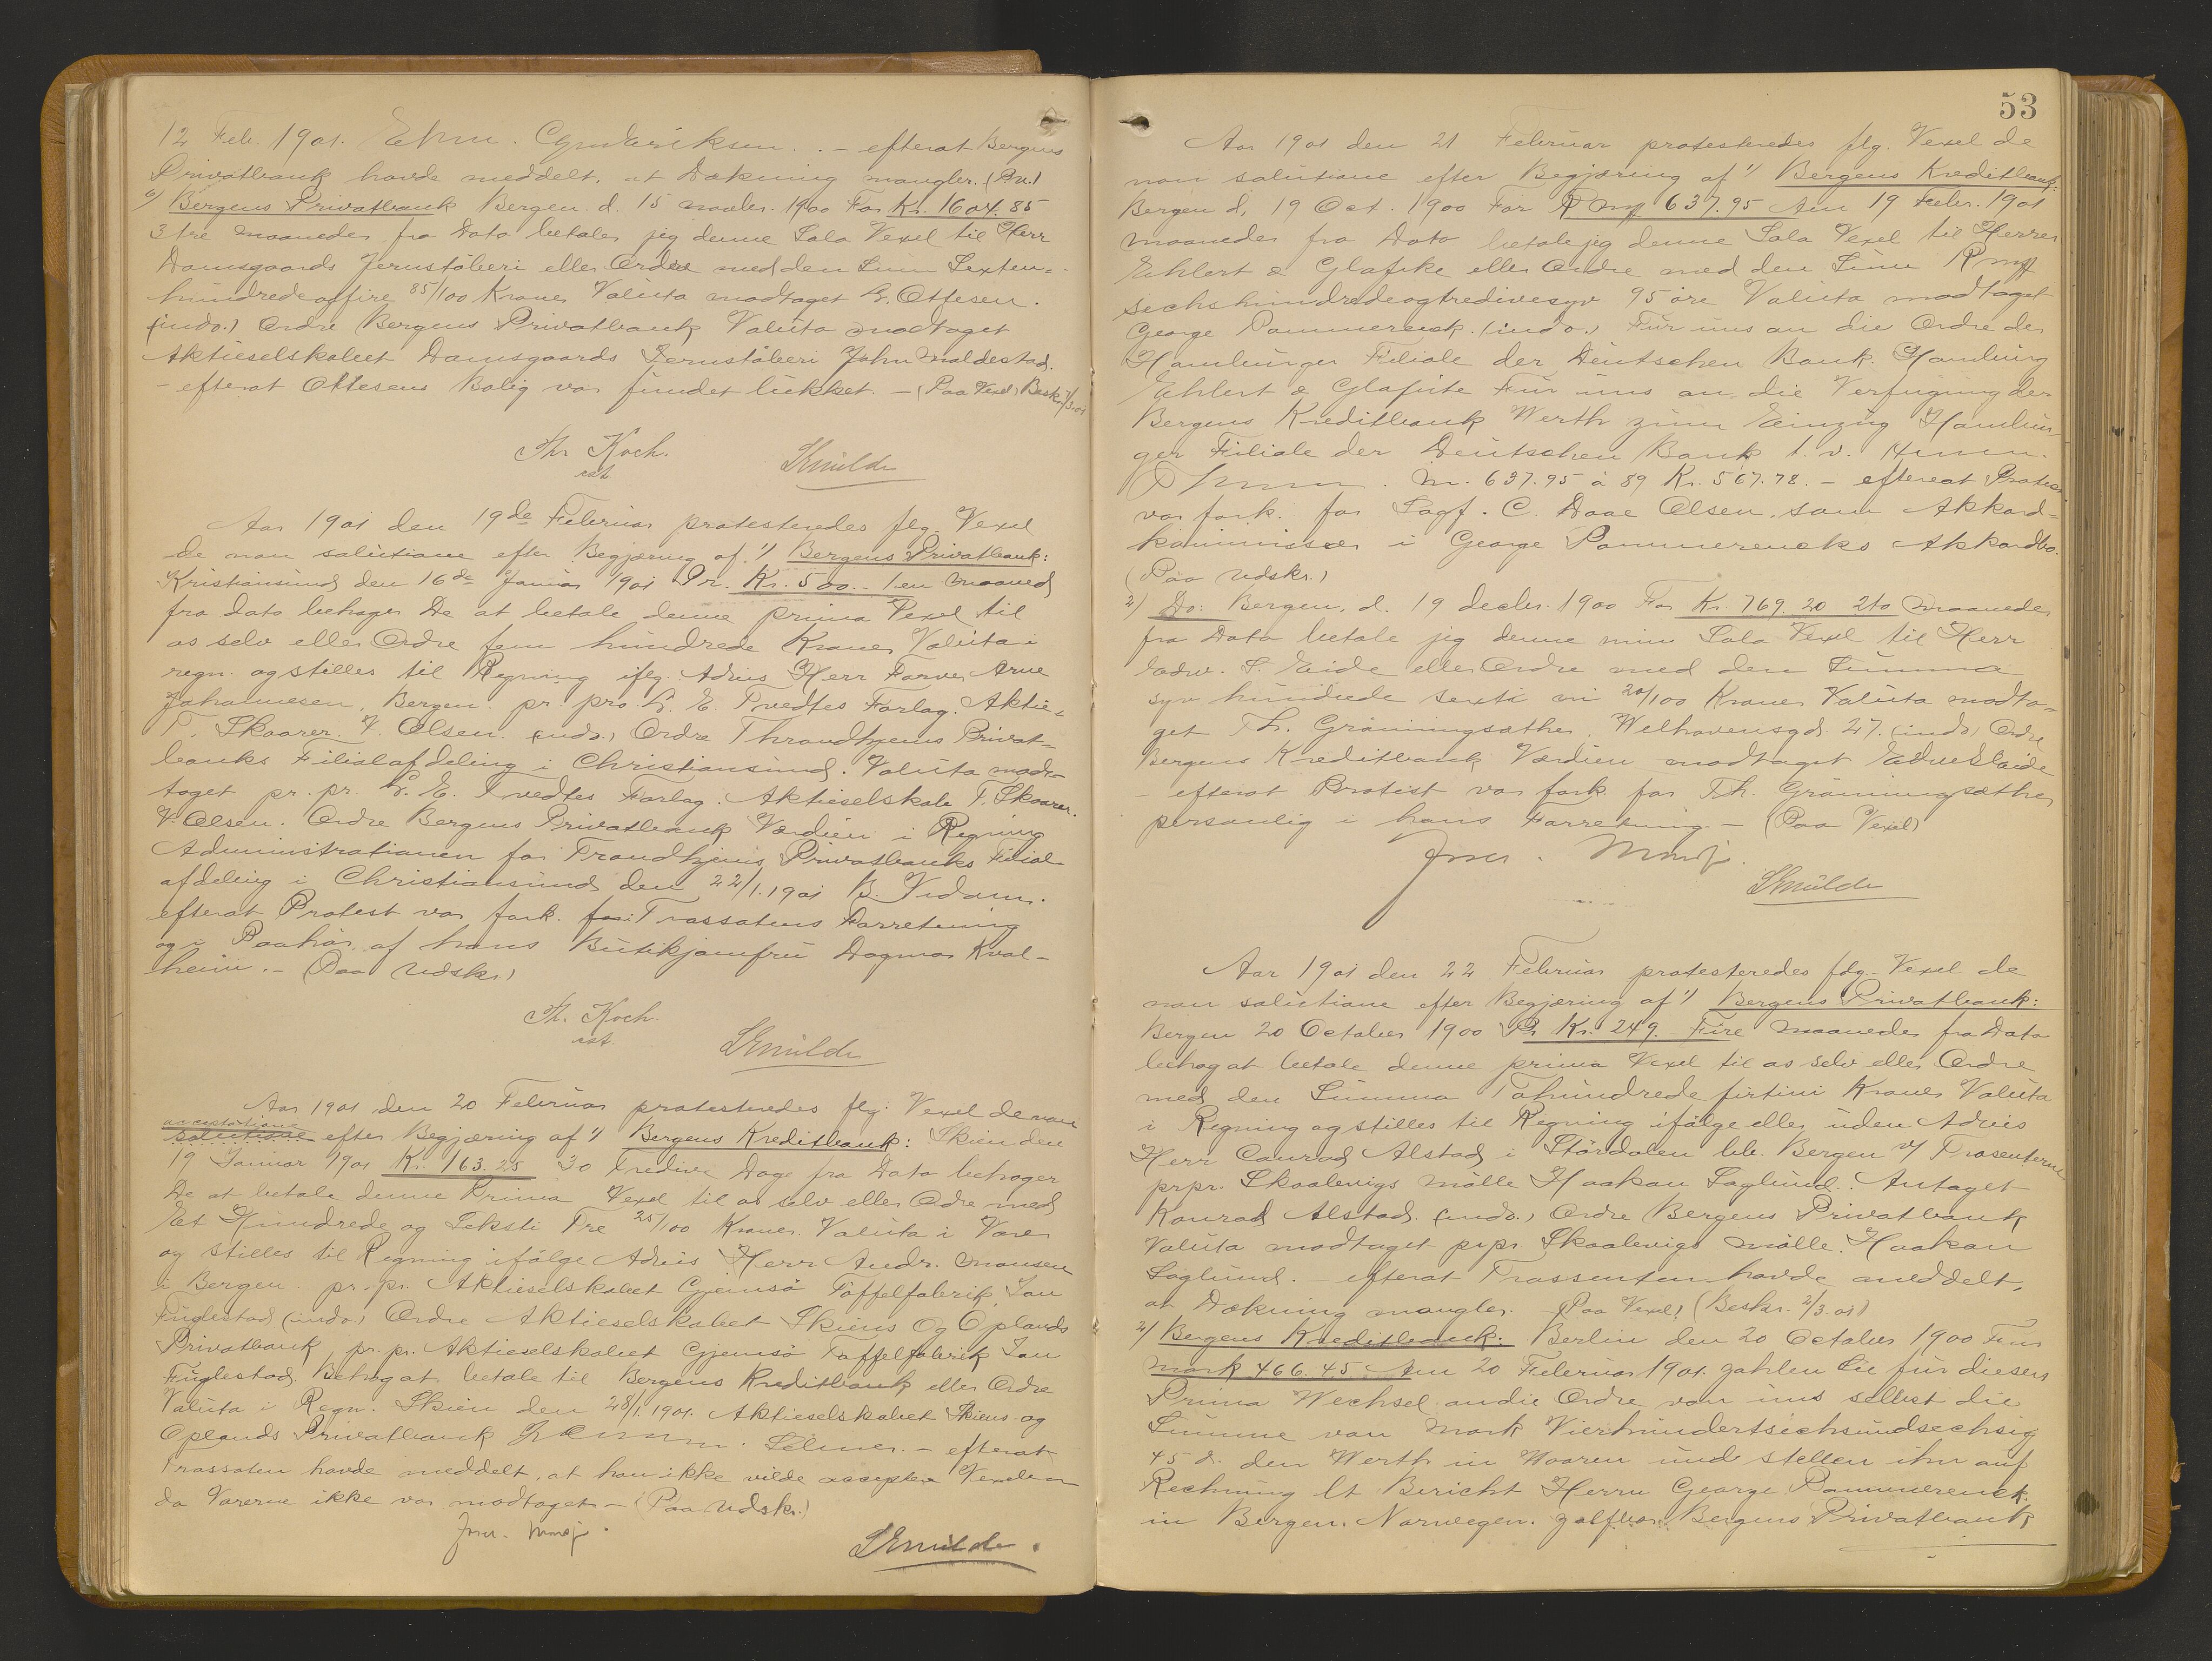 12 Feb. 1901. – efterat Bergens
Privatbank havde meddelt, at Dækning mangler. (P.v.)
6) Bergens Privatbank Bergen d. 15 novbr. 1900 For Kr. 1604.85
3 tre maaneder fra Dato betaler jeg denne Sola Vexel til Herr
Damsgaards Jernstøberi eller Ordre med den Sum Sexten-
hundredeogfire 85/100 Kroner Valuta modtaget Ottesen.
(indo.) Ordre Bergens Privatbank Valuta modtaget
Aktieselskabet Damsgaards Jernstøberi John Maldestad.
– efterat Ottesens Bolig var fundet lukket. – (Paa Vexel) Beskr. 2/3.01
Th Koch.
cst
Aar 1901 den 19de Februar protesteredes flg. Vexel
de non solutione efter Begjæring af 1) Bergens Privatbank:
Kristiansund den 16de Januar 1901 Pr. Kr. 500.– 1 en Maaned
fra dato behager De at betale denne prima Vexel til
os selv eller Ordre fem hundrede Kroner Valuta i
regn. og stilles til Regning iflg. Advis Herr Farver Arne
Johannesen, Bergen. pr. pro. L. E. Tvedtes Forlag. Aktie-
T. Skaarer. V. Olsen. (indo.) Ordre Throndhjems Privat-
banks Filialafdeling i Christiansund. Valuta mod-
taget pr. pr. L. E. Tvedtes Forlag. Aktieselskab T. Skaarer.
V. Olsen. Ordre Bergens Privatbank Værdien i Regning
Administrationen for Trondhjems Privatbanks Filial-
afdeling i Christiansund den 22/1.1901 B.
efterat Protest var fork. for Trassatens Forretning
og i Paahør af hans Butikjomfru Dagmar Kval-
heim. – (Paa Udskr.)
Th. Koch.
cst.
Aar 1901 den 20 Februar protesteredes flg. Vexel de non
acceptatione
solutione efter Begjæring af 1) Bergens Kreditbank: Skien den
19 Januar 1901 Kr. 163.25 30 Tredive Dage fra Dato behager
De at betale denne Prima Vexel til os selv eller Ordre med
Et Hundrede og Seksti Tre 25/100 Kroner. Valuta i Varer
og stilles til Regning ifølge Advis Herr Andr. Monsen
i Bergen. pr. pr. Aktieselskabet Gjemsø Tøffelfabrik Jan
Fuglestad (indo) Ordre Aktieselskabet Skiens Og Oplands
Privatbank, pr. pr. Aktieselskabet Gjemsø Tøffelfabrik Jan
Fuglestad. Behag at betale til Bergens Kreditbank eller Ordre
Valuta i Regn. Skien den 28/1.1901. Aktieselskabet Skiens og
Oplands Privatbank – efterat
Trassaten havde meddelt, at han ikke vilde acceptere Vexelen
da Varerne ikke var modtaget – (Paa Udskr.)
53
Aar 1901 den 21 Februar protesteredes flg. Vexel de
non solutione efter Begjæring af 1) Bergens Kreditbank:
Bergen d. 19 Oct. 1900 Für Rmf 637.95 Am 19 Febr. 1901
maaneder fra Dato betale jeg denne Sola Vexel til Herrer
Ehlert & Glafcke eller Ordre med den Sum Rmf
sechshundredeogtredivesyv 95 øre Valuta modtaget
George Pommerenck. (indo.) Für uns an die Ordre der
Hamburger Filiale der Deutschen Bank. Hamburg
Ehlert & Für uns an die Verfugung der
Bergens Kreditbank Werth zum Einzug Hambur-
ger Filiale der Deutschen Bank
M. 637.95 à 89 Kr. 567.78. – efterat Protest
var fork. for Sagf. C. Daae Olsen, som Akkord-
kommissær i George Pommerencks Akkordbo.
(Paa Udskr.)
2) Do: Bergen, d. 19 decbr. 1900 For Kr. 769.20 2to Maaneder
fra Dato betale jeg denne min Sola Vexel til Herr
Edw. S. Eide eller Ordre med den Summa
syv hundrede sexti ni 20/100 Kroner Valuta modta-
get Th. Grønningsæther. Welhavensgd. 27. (indo) Ordre
Bergens Kreditbank Værdien modtaget Edw S Eide
– efterat Protest var fork. for Th. Grønningsæther
personlig i hans Forretning. – (Paa Vexel)
Aar 1901 den 22 Februar protesteredes fdg. Vexel de
non solutione efter Begjæring af 1) Bergens Privatbank:
Bergen 20 October 1900 Pr Kr. 249. Fire maaneder fra Dato
behag at betale denne prima Vexel til os selv eller Ordre
med den Summa Tohundrede førtini Kroner Valuta
i Regning og stilles til Regning ifølge eller uden Advis
Herr Conrad Alstad i Størdalen bb. Bergen v/ Trasenterne
prpr. Skaalevigs Mølle Haakon Saglund. Antaget
Konrad Alstad. (indo.) Ordre Bergens Privatbank
Valuta modtaget prpr Skaalevigs Mølle. Haakon
Saglund. – efterat Trassenten havde meddelt,
at Dækning mangler. (Paa Vexel) (Beskr. 2/3.01)
2) Bergens Kreditbank: Berlin den 20 October 1900 Für
Mark 466.45 Am 20 Februar 1901. zahlen Sie für diesen
Prima Wechsel an die Ordre von uns selbst die
Summe von Mark Vierhundertsechsundsechsig
45 d. den Werth in Waaren und stellen ihn auf
Rechnung lt Bericht Herrn George Pommerenck.
in Bergen. Norwegen. Bergens Privatbank